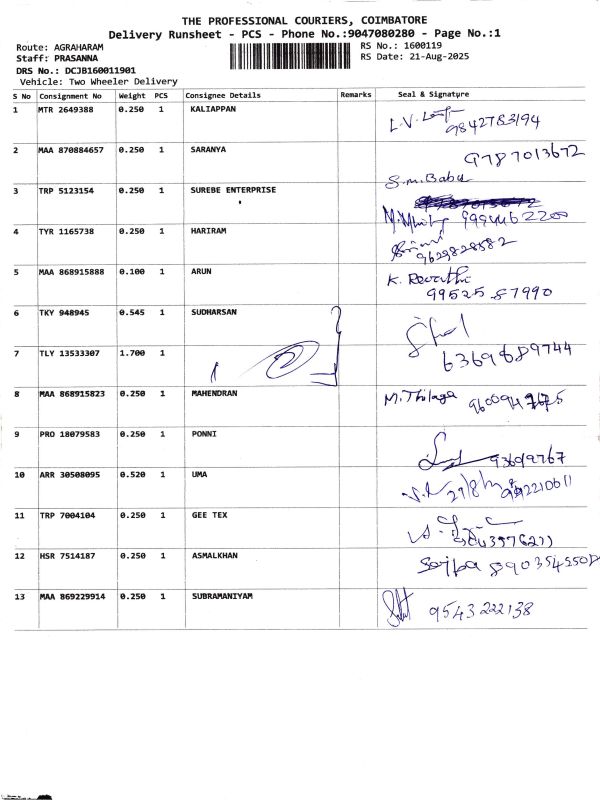 THE PROFESSIONAL COURIERS, COIMBATORE
Delivery Runsheet - PCS - Phone No.:9047080280 - Page No.:1
Route: AGRAHARAM
RS No.: 1600119
Staff: PRASANNA
RS Date: 21-Aug-2025
DRS No.: DCJB160011901
Vehicle: Two Wheeler Delivery
S No Consignment No Weight PCS Consignee Details Remarks Seal & Signature
1 MTR 2649388 0.250 1 KALIAPPAN
L.V. 9842783194
2 MAA 870884657 0.250 1 SARANYA 9787013672
S.m.Babu
3 TRP 5123154 0.250 1 SUREBE ENTERPRISE
4 TYR 1165738 0.250 1 HARIRAM
9629828582
5 MAA 868915888 0.100 1 ARUN K. Revathi
99525 87990
6 TKY 948945 0.545 1 SUDHARSAN
7 TLY 13533307 1.700 1 2 6369689744
8 MAA 868915823 0.250 1 MAHENDRAN M.Thilaga
9 PRO 18079583 0.250 1 PONNI
10 ARR 30508095 0.520 1 UMA
11 TRP 7004104 0.250 1 GEE TEX
12 HSR 7514187 0.250 1 ASMALKHAN
13 MAA 869229914 0.250 1 SUBRAMANIYAM 9543222138